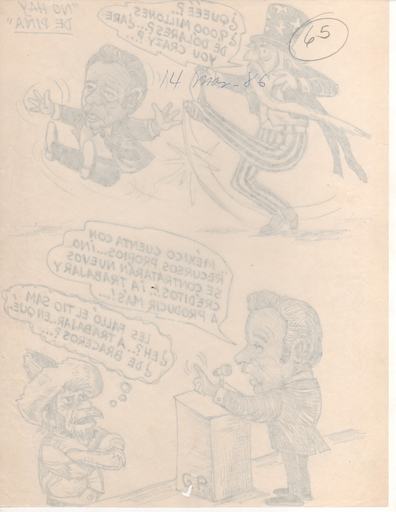 "NO HAY
DE PIÑA"
¿QUEEE?
¿9,000 MILLONES
DE DOLARES?..¿ARE
YOU CRAZY?...
65
14 mar- 86
MEXICO CUENTA CON
RECURSOS PROPIOS...¡NO
SE CONTRATARÁN NUEVOS
CREDITOS ¡A TRABAJAR Y
A PRODUCIR MAS!...
LES FALLÓ EL TIO SAM
¿EH?..¿A TRABAJAR..EN QUÉ..
¿DE BRACEROS?...